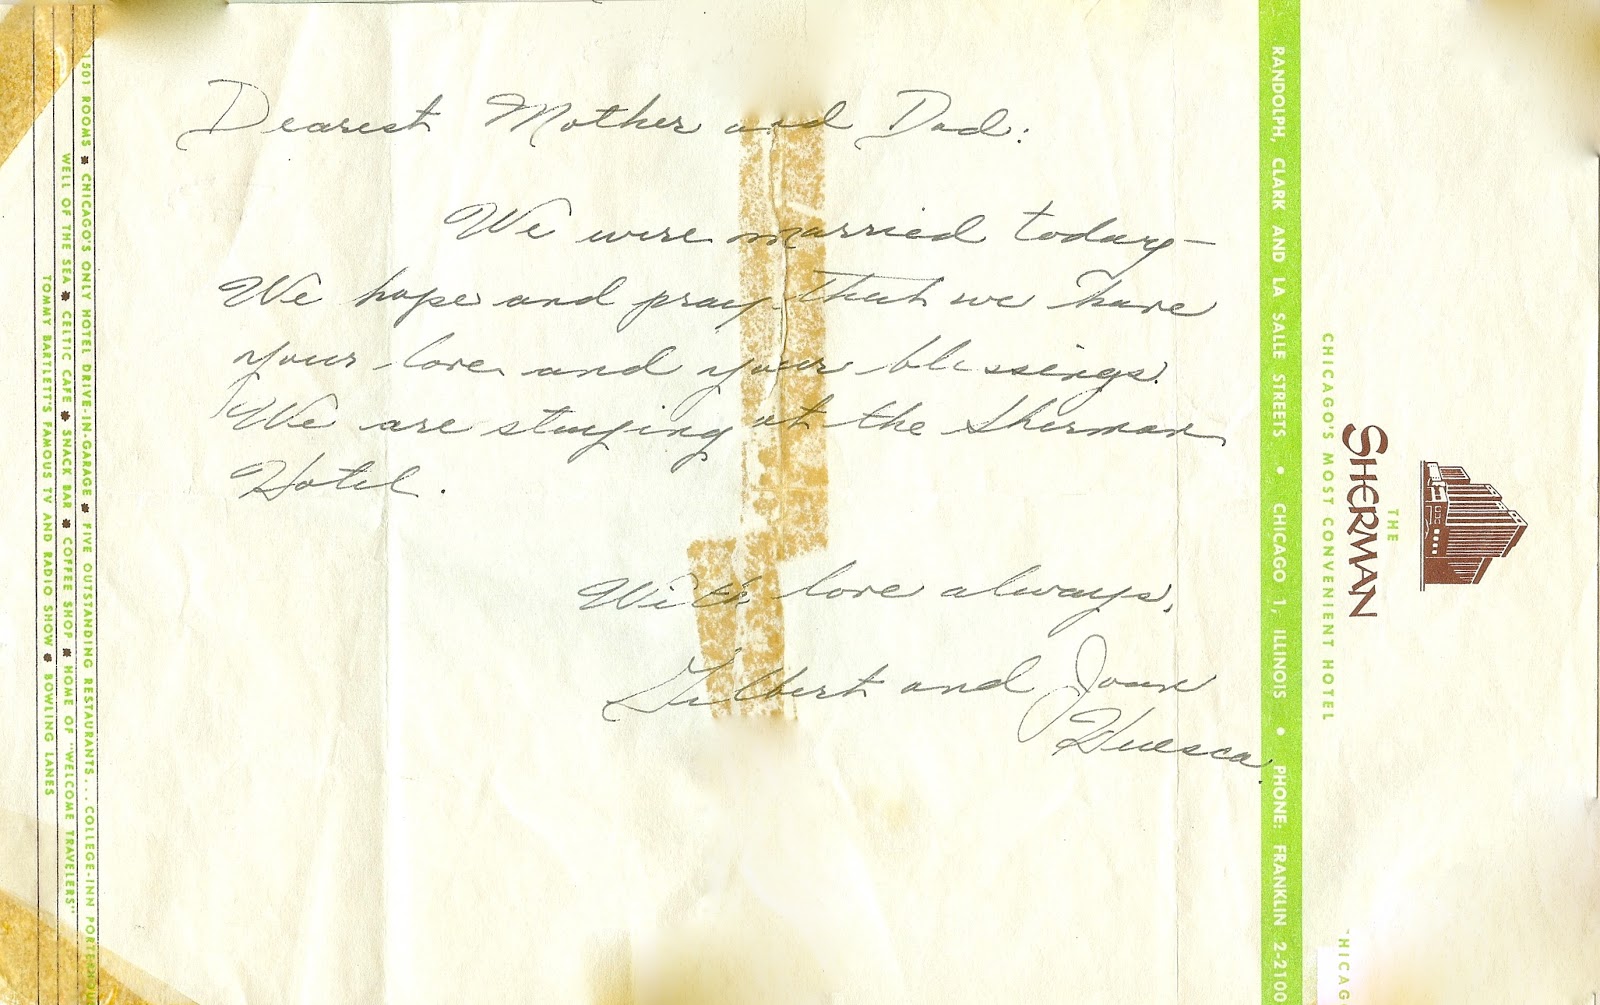 Dearest Mother and Dad:
We were married today—
We hope and pray that we have
your love and your blessings.
We are staying at the Sherman
Hotel.
With love always,
Gilbert and Joan
Huesca.
THE
SHERMAN
CHICAGO'S MOST CONVENIENT HOTEL
RANDOLPH, CLARK AND LA SALLE STREETS • CHICAGO 1, ILLINOIS • PHONE: FRANKLIN 2-2100
1501 ROOMS * CHICAGO'S ONLY HOTEL DRIVE-IN-GARAGE * FIVE OUTSTANDING RESTAURANTS... COLLEGE-INN PORTERHOU
WELL OF THE SEA * CELTIC CAFE * SNACK BAR * COFFEE SHOP * HOME OF "WELCOME TRAVELERS"
TOMMY BARTLETT'S FAMOUS TV AND RADIO SHOW * BOWLING LANES